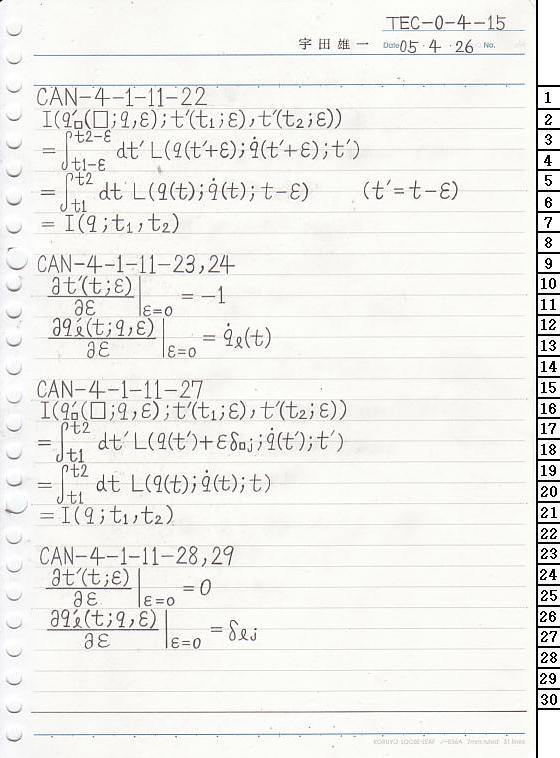 TEC-0-4-15
宇田雄一 Date 05・4・26 No.
CAN-4-1-11-22
I(q′□(□;q,ε);t′(t₁;ε),t′(t₂;ε))
=∫_{t1-ε}^{t2-ε} dt′ L(q(t′+ε);q̇(t′+ε);t′)
=∫_{t1}^{t2} dt L(q(t);q̇(t);t-ε) (t′=t-ε)
=I(q;t₁,t₂)
CAN-4-1-11-23,24
∂t′(t;ε)/∂ε|_{ε=0} = -1
∂q′ᵢ(t;q,ε)/∂ε|_{ε=0} = q̇ᵢ(t)
CAN-4-1-11-27
I(q′□(□;q,ε);t′(t₁;ε),t′(t₂;ε))
=∫_{t1}^{t2} dt′ L(q(t′)+εδ□ⱼ;q̇(t′);t′)
=∫_{t1}^{t2} dt L(q(t);q̇(t);t)
=I(q;t₁,t₂)
CAN-4-1-11-28,29
∂t′(t;ε)/∂ε|_{ε=0} = 0
∂q′ᵢ(t;q,ε)/∂ε|_{ε=0} = δᵢⱼ
1
2
3
4
5
6
7
8
9
10
11
12
13
14
15
16
17
18
19
20
21
22
23
24
25
26
27
28
29
30
KOKUYO LOOSE-LEAF ノ-836A 7mm ruled 31 lines